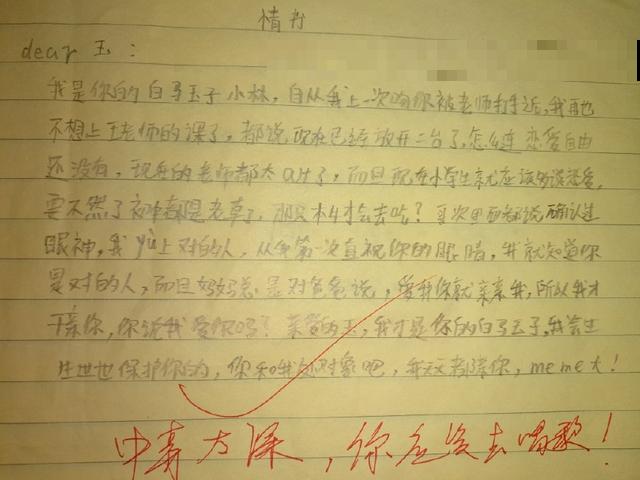 情书
dear 玉:
我是你的白马王子小林,自从我上一次吻你被老师打手后,我再也
不想上王老师的课了,都说现在已经放开二台了,怎么连恋爱自由
还没有,现在的老师都太out了,而且现在小学生就应该多谈恋爱,
要不然了初中都是老草了,那只木牛才会去吃?哥次里面都说确认过
眼神,我yù上对的人,从我第一次直视你的眼睛,我就知道你
是对的人,而且妈妈总是对爸爸说,爱我你就亲亲我,所以我才
亲你,你说我爱你吗?亲爱的玉,我才是你的白马王子,我会生
生世世保护你的,你和我处对象吧,我天天都亲你,me me大!
中毒太深,你应该去唱歌!